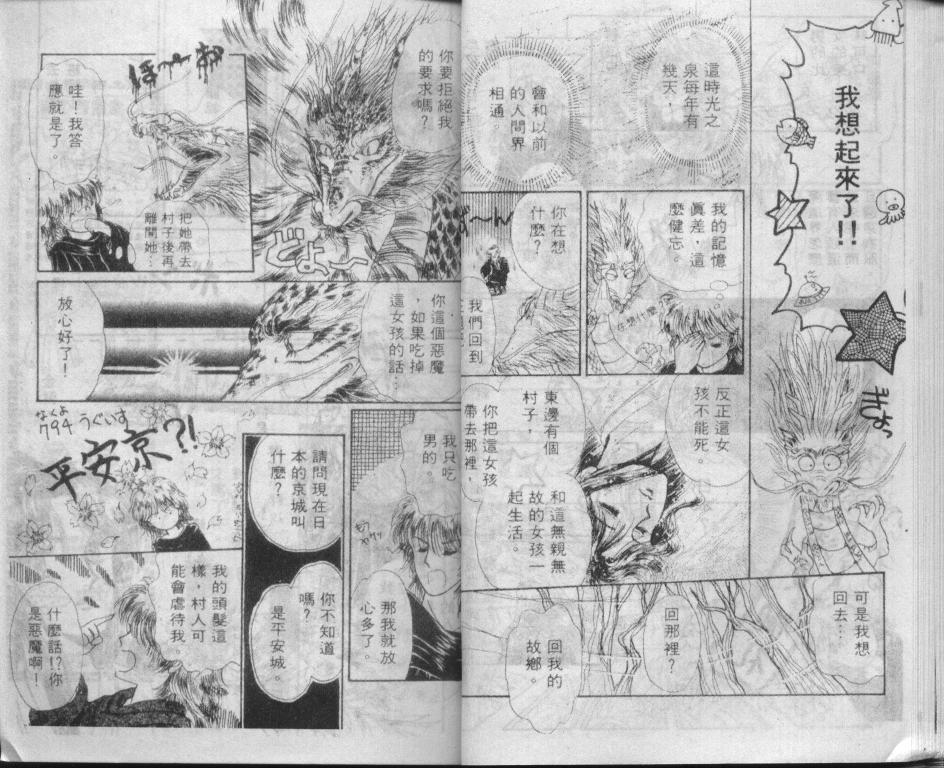 我想起來了!!
ぎょっ
這時光之
泉每年有
幾天，
會和以前
的人間界
相通。
我的記憶
眞差，這
麼健忘。
在想什麼
你在想
什麼？
我們回到
反正這女
孩不能死。
東邊有個
村子，
你把這女孩
帶去那裡，
和這無親無
故的女孩一
起生活。
可是我想
回去…
回那裡？
回我的
故鄉。
你要拒絕我
的要求嗎？
どよ〜
哇！我答
應就是了。
把她帶去
村子後再
離開她…
你這個惡魔
，如果吃掉
這女孩的話…
放心好了！
我只吃
男的。
那我就放
心多了。
請問現在日
本的京城叫
什麼？
你不知道
嗎？
是平安城。
なくよ
794 うぐいす
平安京?!
我的頭髮這
樣，村人可
能會虐待我。
什麼話!?你
是惡魔啊！